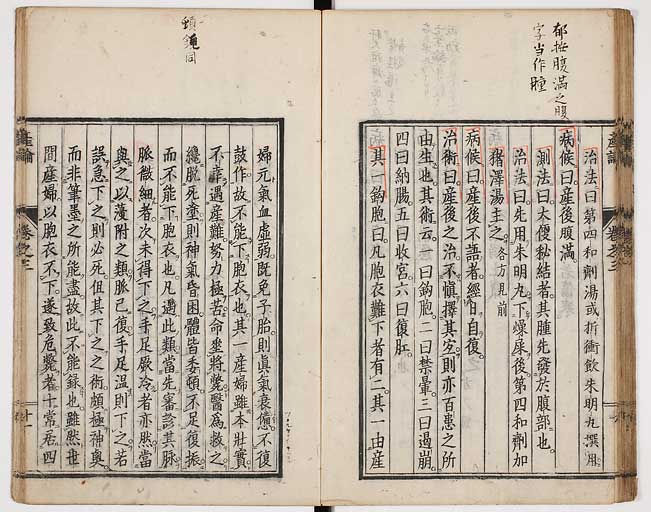 郁按腹滿之腹
字当作腫
產論
卷之三
治法曰第四和劑湯或折衝飲朱明丸撰用
病候曰產後腹滿
測法曰大便秘結者其腫先發於腹部也
治法曰先用朱明丸下燥屎後第四和劑加
豬澤湯主之各方見前
病候曰產後不語者經日自復
治術曰產後之治不慎擇其宜則亦百患之所
由生也其術云一曰鉤胞二曰禁暈三曰遏崩
四曰納腸五曰收宮六曰復肛
其一鉤胞曰凡胞衣難下者有二其一由產
同
婦元氣血虛弱既免子胎則真氣衰憊不復
鼓作故不能下胞衣也其一產婦雖本壯實
不幸遇產難努力極苦命垂將斃醫爲救之
纔脫死塗則神氣昏困體皆委頓不足復振
而不能下胞衣也凡遇此類當先審診其脈
脈微細者次未得下之手足厥冷者亦然當
與之以蔆附之類脈已復手足溫則下之若
誤急下之則必死但其下之之術頗極神奧
而非筆墨之所能盡故此不能錄也雖然世
間產婦以胞衣不下遂致危斃者十常居四
產論
卷之三
十一